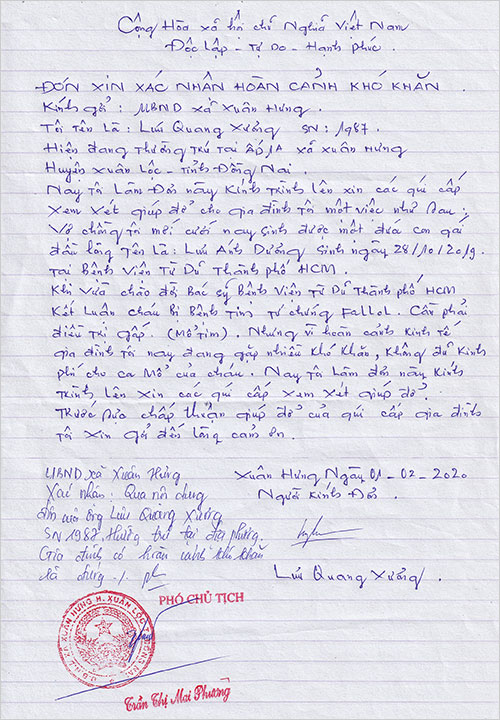 Cộng Hòa xã hội chủ Nghĩa Việt Nam
Độc Lập - Tự Do - Hạnh phúc.
ĐƠN XIN XÁC NHẬN HOÀN CẢNH KHÓ KHĂN.
Kính gởi: UBND xã Xuân Hưng.
Tôi Tên Là: Lưu Quang Xưởng SN: 1987.
Hiện đang Thường Trú Tại ấp 1A xã Xuân Hưng
Huyện Xuân Lộc - Tỉnh Đồng Nai.
Nay Tôi Làm Đơn này Kính Trình Lên xin các quí cấp
Xem Xét giúp đở cho gia đình tôi một việc như sau:
Vợ chồng tôi mới cưới nay sinh được một đứa con gái
đầu lòng Tên Là: Lưu Ánh Dương Sinh ngày 28/10/2019.
Tại Bệnh Viện Từ Dũ Thành phố HCM.
Khi Vừa chào đời Bác sỹ Bệnh Viện Từ Dũ Thành phố HCM
Kết Luận cháu Bị Bệnh Tim Tứ chứng Fallol. Cần phải
điều Trị gấp. (Mổ Tim). Nhưng vì hoàn cảnh Kinh Tế
gia đình Tôi nay đang gặp nhiều Khó Khăn, Không đủ Kinh
phí cho ca Mổ của cháu. Nay Tôi Làm đơn này Kính
Trình Lên xin các quí cấp Xem Xét giúp đở.
Trước sự chấp Thuận giúp đở của quí cấp gia đình
Tôi Xin gởi đến Lòng cảm ơn.
Xuân Hưng Ngày 01-02-2020
Người Kính Đơn.
Lưu Quang Xưởng.
UBND xã Xuân Hưng
Xác nhận: Qua nội dung
đơn của ông Lưu Quang Xưởng
SN 1987, thường trú tại địa phương.
Gia đình có hoàn cảnh khó khăn
là đúng./.
PHÓ CHỦ TỊCH
U.B.N.D XÃ XUÂN HƯNG H. XUÂN LỘC T. ĐỒNG NAI
Trần Thị Mai Phương